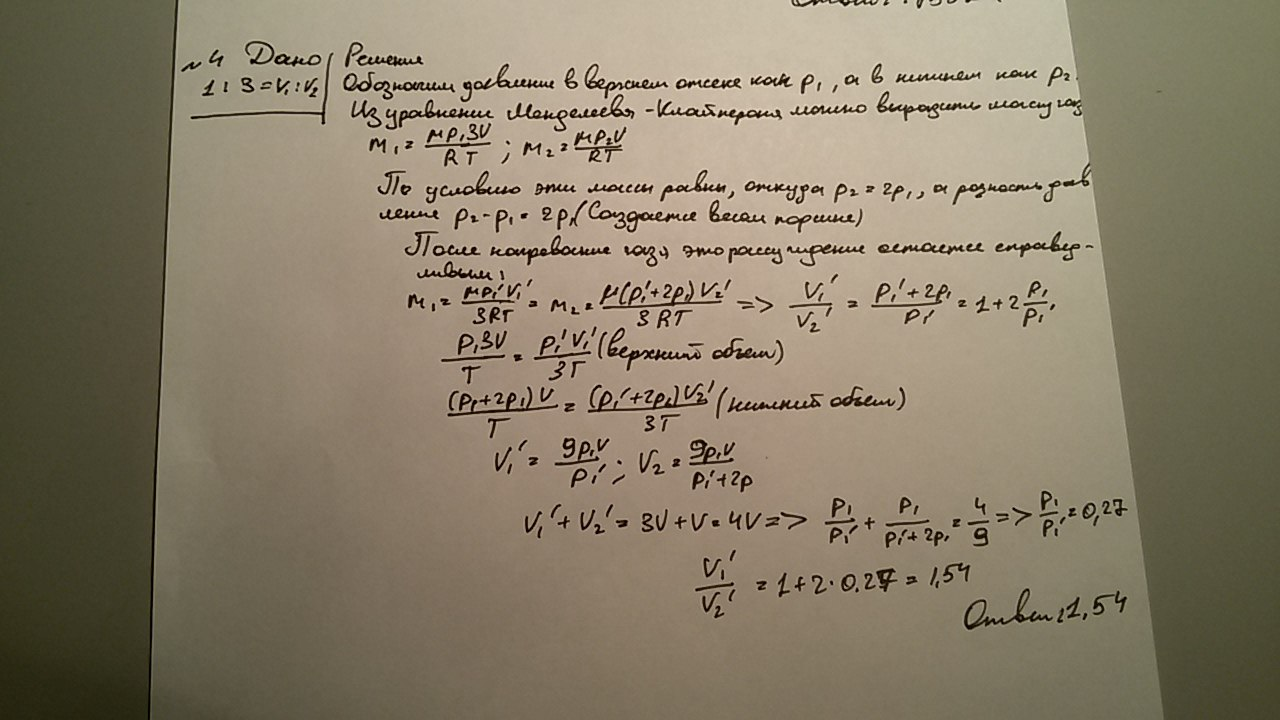 №4 Дано Решение
1 : 3 = V₁ : V₂ Обозначим давление в верхнем отсеке как p₁, а в нижнем как p₂.
Из уравнении Менделеева - Клайперона можно выразить массу газ
m₁ = μp₁3V/RT ; m₂ = μp₂V/RT
По условию эти массы равны, откуда p₂ = 2p₁, а разность дав
ление p₂ - p₁ = 2p₁ (Создается весом поршне)
После нагревание газа это рассуждение остается справед-
ливым:
m₁ = μp₁'V₁'/3RT = m₂ = μ(p₁'+2p₁)V₂'/3RT => V₁'/V₂' = p₁'+2p₁/p₁' = 1+2 p₁/p₁'
p₁3V/T = p₁'V₁'/3T (верхний объем)
(p₁+2p₁)V/T = (p₁'+2p₁)V₂'/3T (нижний объем)
V₁' = 9p₁V/p₁' ; V₂ = 9p₁V/p₁'+2p
V₁' + V₂' = 3V + V = 4V => p₁/p₁' + p₁/p₁'+2p₁ = 4/9 => p₁/p₁' = 0,27
V₁'/V₂' = 1 + 2 · 0.27 = 1,54
Ответ: 1,54